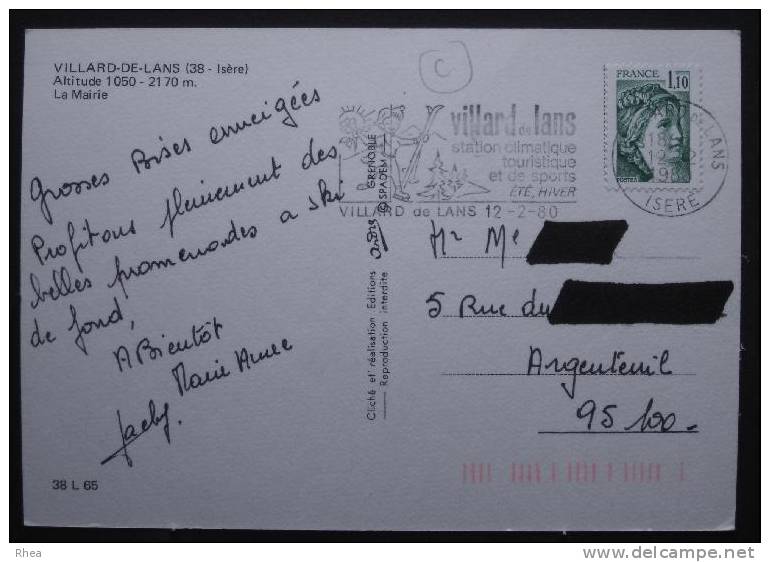 VILLARD-DE-LANS (38 - Isère)
Altitude 1050 - 2170 m.
La Mairie
Grosses Bises enneigées
Profitons pleinement des
belles promenades a ski
de fond,
A Bientôt
Marie Annee
Jacky
38 L 65
Cliché et réalisation Editions andre GRENOBLE
Reproduction interdite © SPADEM
C
villard de lans
station climatique
touristique
et de sports
ÉTÉ, HIVER
VILLARD de LANS 12-2-80
FRANCE 1,10
POSTES
LANS
18
12-2
ISERE
Mr Me
5 Rue du
Argenteuil
95100-
Rhea
www.delcampe.net